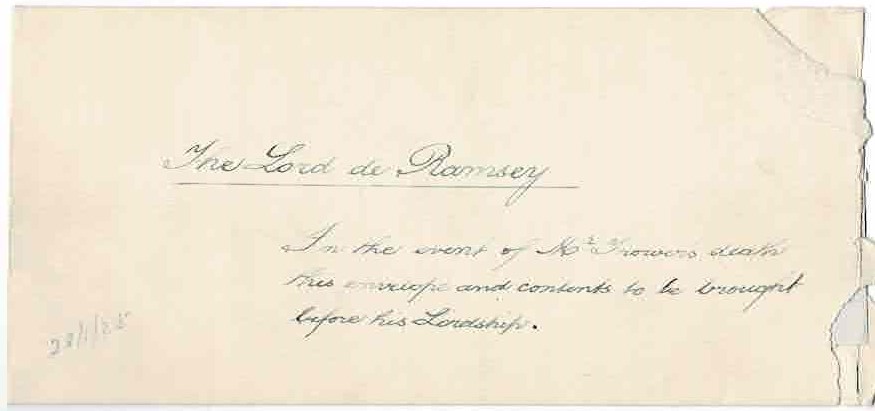 The Lord de Ramsey
In the event of Mr Trowers death
this envelope and contents to be brought
before his Lordship.
28/1/25